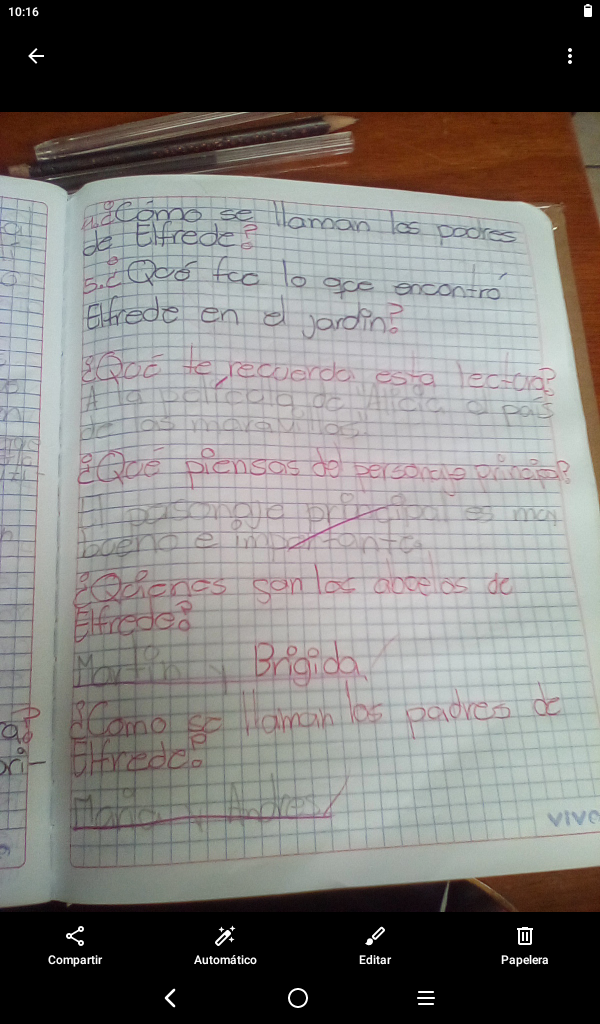 10:16
4.¿Cómo se llaman los padres
de Elfrede?
5.¿Qué fue lo que encontró
Elfrede en el jardin?
¿Qué te recuerda esta lectura?
A la película de Alicia al país
de las maravillas.
¿Qué piensas del personaje principal?
El personaje principal es muy
bueno e importante.
¿Quienes son los abuelos de
Elfrede?
Martín y Brigida.
¿Como se llaman los padres de
Elfrede?
María y Andres
Compartir
Automático
Editar
Papelera